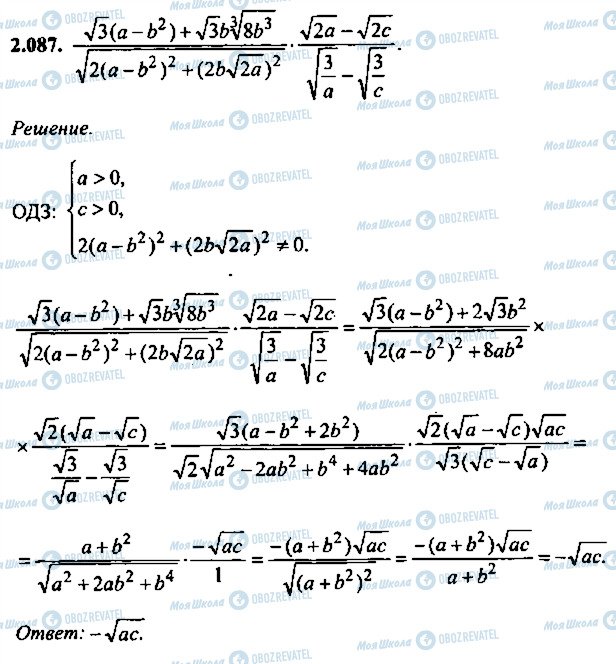 2.087. \frac{\sqrt{3}(a-b^2)+\sqrt{3}b\sqrt[3]{8b^3}}{\sqrt{2(a-b^2)^2+(2b\sqrt{2a})^2}} \cdot \frac{\sqrt{2a}-\sqrt{2c}}{\sqrt{\frac{3}{a}}-\sqrt{\frac{3}{c}}}.
Решение.
ОДЗ: \begin{cases} a>0, \\ c>0, \\ 2(a-b^2)^2+(2b\sqrt{2a})^2 \neq 0. \end{cases}
\frac{\sqrt{3}(a-b^2)+\sqrt{3}b\sqrt[3]{8b^3}}{\sqrt{2(a-b^2)^2+(2b\sqrt{2a})^2}} \cdot \frac{\sqrt{2a}-\sqrt{2c}}{\sqrt{\frac{3}{a}}-\sqrt{\frac{3}{c}}} = \frac{\sqrt{3}(a-b^2)+2\sqrt{3}b^2}{\sqrt{2(a-b^2)^2+8ab^2}} ×
× \frac{\sqrt{2}(\sqrt{a}-\sqrt{c})}{\frac{\sqrt{3}}{\sqrt{a}}-\frac{\sqrt{3}}{\sqrt{c}}} = \frac{\sqrt{3}(a-b^2+2b^2)}{\sqrt{2}\sqrt{a^2-2ab^2+b^4+4ab^2}} \cdot \frac{\sqrt{2}(\sqrt{a}-\sqrt{c})\sqrt{ac}}{\sqrt{3}(\sqrt{c}-\sqrt{a})} =
= \frac{a+b^2}{\sqrt{a^2+2ab^2+b^4}} \cdot \frac{-\sqrt{ac}}{1} = \frac{-(a+b^2)\sqrt{ac}}{\sqrt{(a+b^2)^2}} = \frac{-(a+b^2)\sqrt{ac}}{a+b^2} = -\sqrt{ac}.
Ответ: -\sqrt{ac}.